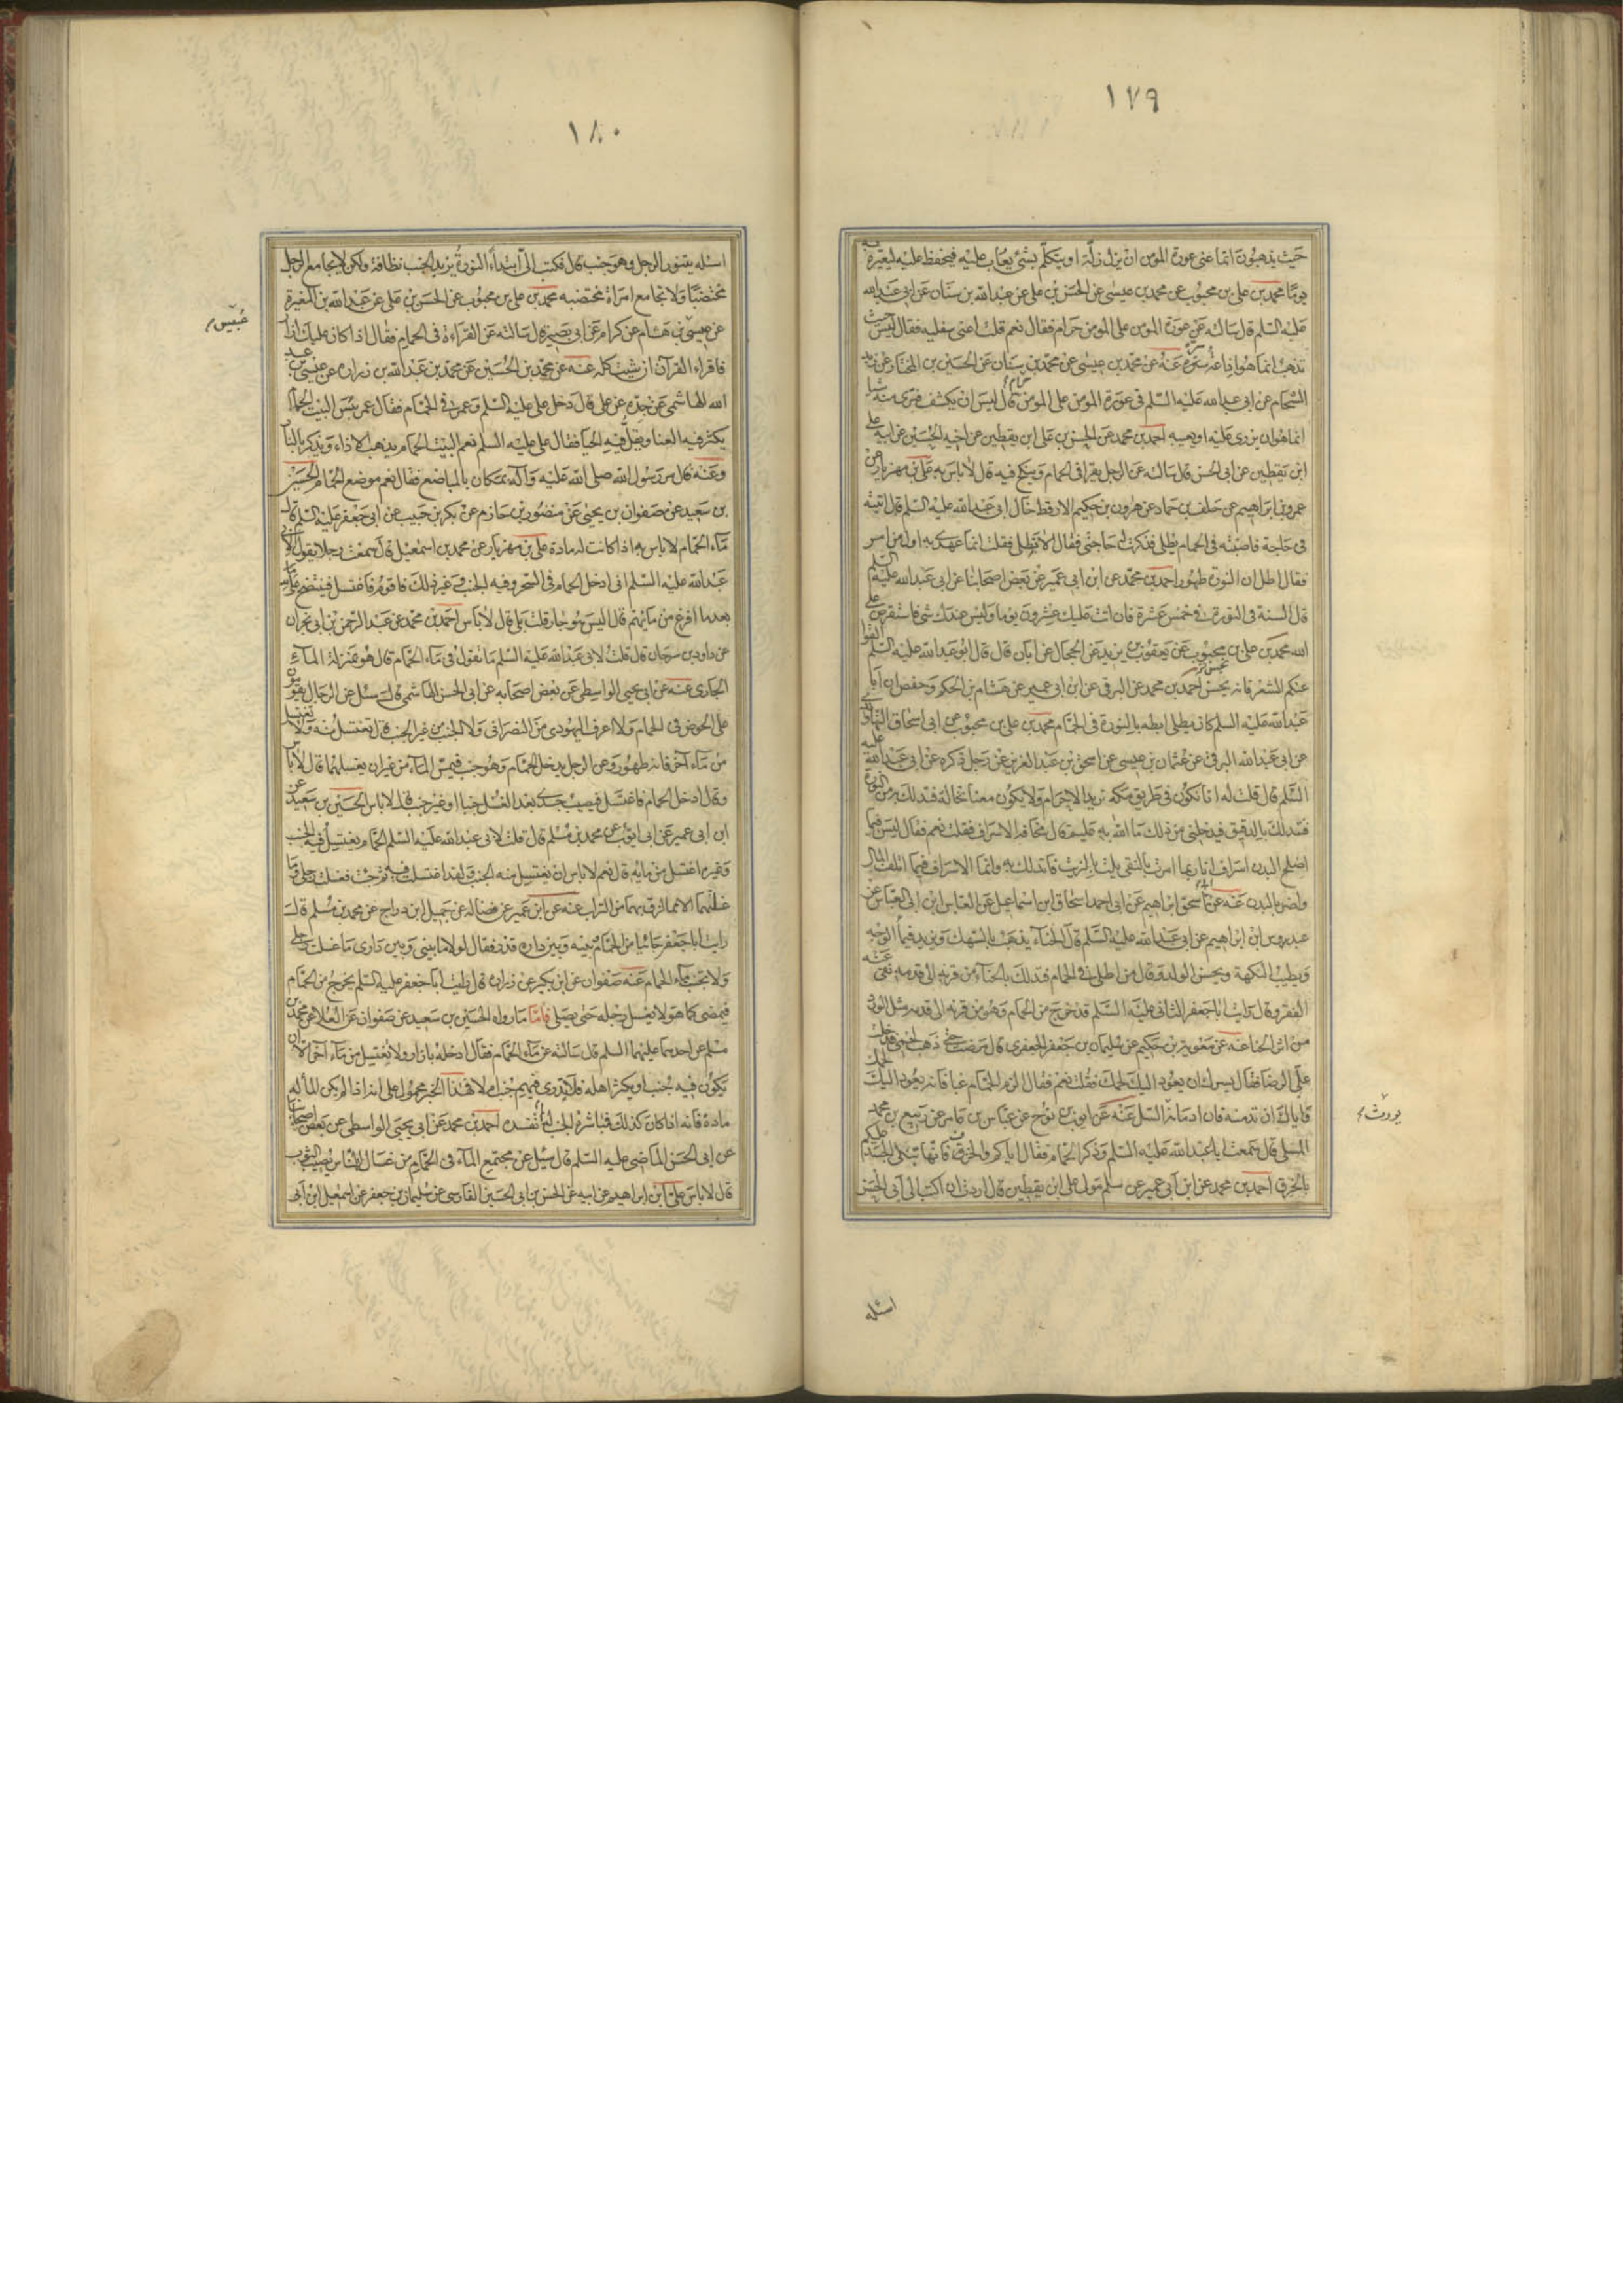 ١٧٩
حيث يذهبون انما عنى عورة المومن ان يزل زلة او يتكلم بشئ يعاب عليه فيحفظ عليه ليعيره به
يوما محمد بن علي بن محبوب عن محمد بن عيسى عن الحسن بن علي عن عبد الله بن سنان عن ابي عبد الله
عليه السلم قال سالته عن عورة المومن على المومن حرام فقال نعم قلت اعنى سفليه فقال ليس حيث
تذهب انما هو اذاعة سره عنه عن محمد بن عيسى عن محمد بن سنان عن الحسين بن المختار عن زيد
الشحام عن ابي عبد الله عليه السلم في عورة المومن على المومن حرام قال ليس ان يكشف فترى منه شيا
انما هو ان يزرى عليه او يعيبه احمد بن محمد عن الحسن بن علي ابن يقطين عن اخيه الحسين عن ابيه علي
ابن يقطين عن ابي الحسن قال سالته عن الرجل يقرا في الحمام وينكح فيه قال لا باس به علي بن مهزيار عن
عمرو بن ابراهيم عن خلف بن حماد عن هرون بن حكيم الارقط خال ابي عبد الله عليه السلم قال اتيته
في حاجة فاصبته في الحمام يطلى فذكرت له حاجتى فقال الا تطلى فقلت انما عهدى به اول من امس
فقال اطل ان النورة طهور احمد بن محمد عن ابن ابي عمير عن بعض اصحابنا عن ابي عبد الله عليه السلم
قال السنة في النورة في خمس عشرة فان اتت عليك عشرون يوما وليس عندك شئ فاستقرض على
الله محمد بن علي بن محبوب عن يعقوب بن يزيد عن الحجال عن ابان قال قال ابو عبد الله عليه السلم القوا
عنكم الشعر فانه يحسن احمد بن محمد عن البرقى عن ابن ابي عمير عن هشام بن الحكم وحفص ان ابا
عبد الله عليه السلم كان يطلى ابطه بالنورة في الحمام محمد بن علي بن محبوب عن ابي اسحاق النهاوندى
عن ابي عبد الله البرقى عن عثمان بن عيسى عن اسحق بن عبد العزيز عن رجل ذكره عن ابي عبد الله عليه
السلم قال قلت له انا نكون في طريق مكة نريد الاحرام ولا يكون معنا نخالة فتدلك من النورة
فنتدلك بالدقيق فيدخلنى من ذلك ما الله به عليم قال مخافة الاسراف فقلت نعم فقال ليس فيما
اصلح البدن اسراف انا ربما امرت بالنقى يلت بالزيت فاتدلك به وانما الاسراف فيما اتلف المال
واضر بالبدن عنه عن اسحق ابراهيم عن ابي احمد اسحاق ابن اسماعيل عن العباس ابن ابي العباس عن
عبدوس ابن ابراهيم عن ابي عبد الله عليه السلم قال الحناء يذهب بالسهك ويزيد في ماء الوجه
ويطيب النكهة ويحسن الولد وقال من اطلى في الحمام فتدلك بالحناء من قرنه الى قدمه نفى عنه
الفقر وقال رايت ابا جعفر الثانى عليه السلم قد خرج من الحمام وهو من قرنه الى قدمه مثل الورد
من اثر الحنا عنه عن معوية بن حكيم عن سليمان بن جعفر الجعفرى قال مرضت حتى ذهب لحمى فدخلت
على الرضا فقال ايسرك ان يعود اليك لحمك فقلت نعم فقال الزم الحمام غبا فانه يعود اليك لحمك
واياك ان تدمنه فان ادمانه السل عنه عن ايوب بن نوح عن عباس بن عامر عن ربيع بن محمد
المسلى قال سمعت ابا عبد الله عليه السلم وذكر الحمام فقال اياكم والخزف فانها تنكى الجسد عليكم
بالخرق احمد بن محمد عن ابن ابي عمير عن سلم مولى علي ابن يقطين قال اردت ان اكتب الى ابي الحسن
يورث
اسئله
١٨٠
اسئله يتنور الرجل وهو جنب قال فكتب الى ابتداء النورة يزيد الجنب نظافة ولكن لا يجامع الرجل
مختضبا ولا تجامع امراة مختضبه محمد بن علي بن محبوب عن الحسن بن علي عن عبد الله بن المغيرة
عن عيسى بن هشام عن كرام عن ابي بصير قال سالته عن القراءة في الحمام فقال اذا كان عليك ازار
فاقراء القرآن ان شئت كله عنه عن محمد بن الحسين عن محمد بن عبد الله بن زراره عن عيسى بن عبد
الله الهاشمى عن جده عن علي قال دخل علي عليه السلم وعمر في الحمام فقال عمر بئس البيت الحمام
يكثر فيه العنا ويقل فيه الحيا فقال علي عليه السلم نعم البيت الحمام يذهب الاذاء ويذكر بالنار
وعنه قال مر رسول الله صلى الله عليه وآله بمكان بالمباضع فقال نعم موضع الحمام الحسين
بن سعيد عن صفوان بن يحيى عن منصور بن حازم عن بكر بن حبيب عن ابي جعفر عليه السلم قال
ماء الحمام لا باس به اذا كانت له مادة علي بن مهزيار عن محمد بن اسمعيل قال سمعت رجلا يقول لابى
عبد الله عليه السلم انى ادخل الحمام في السحر وفيه الجنب وغير ذلك فاقوم فاغتسل فينتضح على
بعد ما افرغ من مائهم قال اليس هو جار قلت بلى قال لا باس احمد بن محمد عن عبد الرحمن بن ابي نجران
عن داود بن سرحان قال قلت لابي عبد الله عليه السلم ما تقول في ماء الحمام قال هو بمنزلة الماء
الجارى عنه عن ابي يحيى الواسطى عن بعض اصحابه عن ابي الحسن الهاشمى قال سئل عن الرجال يقومون
على الحوض في الحمام ولا اعرف اليهودى من النصرانى ولا الجنب من غير الجنب قال تغتسل منه ولا تغتسل
من ماء آخر فانه طهور وعن الرجل يدخل الحمام وهو جنب فيمس الماء من غير ان يغسلهما قال لا باس
وقال ادخل الحمام فاغتسل فيصيب جسدى بعد الغسل جنبا او غير جنب قال لا باس الحسين بن سعيد عن
ابن ابي عمير عن ابي ايوب عن محمد بن مسلم قال قلت لابي عبد الله عليه السلم الحمام يغتسل فيه الجنب
وغيره اغتسل من مائه قال نعم لا باس ان يغتسل منه الجنب ولقد اغتسلت فيه ثم جئت فغسلت رجلى وما
غسلتهما الا مما لزق بهما من التراب عنه عن ابن عمير عن فضاله عن جميل ابن دراج عن محمد بن مسلم قال
رايت ابا جعفر جائيا من الحمام وبينه وبين داره قذر فقال لولا ما بينى وبين دارى ما غسلت رجلى
ولا تجنب ماء الحمام عنه صفوان عن ابن بكير عن زراره قال رايت ابا جعفر عليه السلم يخرج من الحمام
فيمضى كما هو لا يغسل رجله حتى يصلى فاما ما رواه الحسين بن سعيد عن صفوان عن العلا عن محمد بن
مسلم عن احدهما عليهما السلم قال سالته عن ماء الحمام فقال ادخله بازار ولا تغتسل من ماء آخر الا ان
يكون فيه جنب او يكثر اهله فلا تدرى فيهم جنب ام لا فهذا الخبر محمول على انه اذا لم يكن الماء له
مادة فانه اذا كان كذلك فباشره الجنب نفسده احمد بن محمد عن ابي يحيى الواسطى عن بعض اصحابنا
عن ابي الحسن الماضى عليه السلم قال سئل عن مجتمع الماء في الحمام من غسالة الناس يصيب الثوب
قال لا باس علي ابن ابراهيم عن ابيه عن الحسن بن ابي الحسين الفارسى عن سليمان بن جعفر عن اسمعيل ابن ابي
عبيس